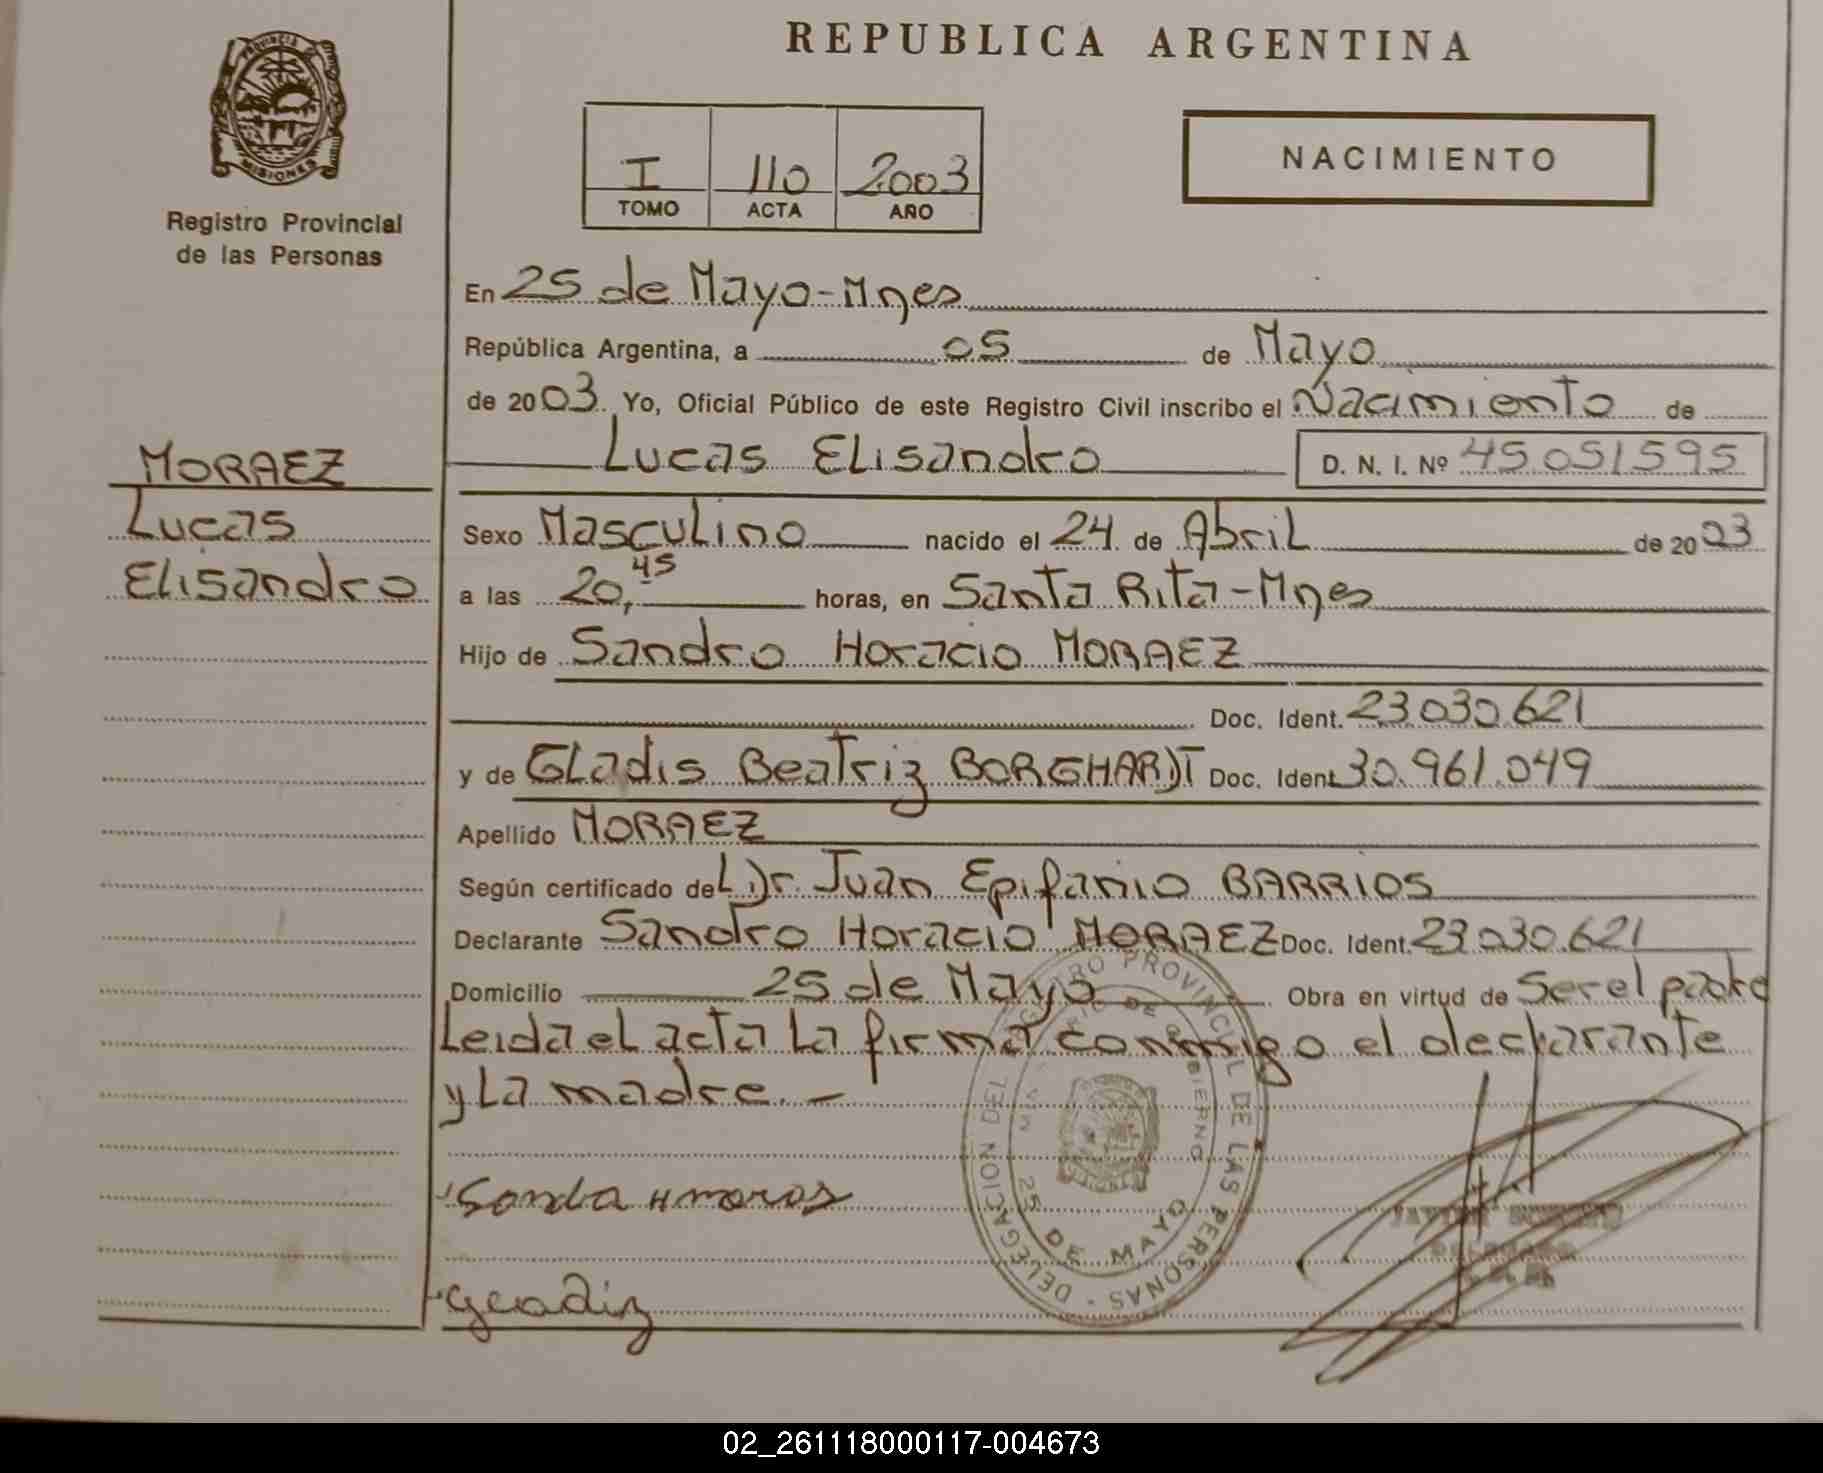 REPUBLICA ARGENTINA
PROVINCIA DE MISIONES
Registro Provincial
de las Personas
I 110 2003
TOMO ACTA AÑO
NACIMIENTO
MORAEZ
Lucas
Elisandro
En 25 de Mayo-Mnes
República Argentina, a 05 de Mayo
de 2003. Yo, Oficial Público de este Registro Civil inscribo el Nacimiento de
Lucas Elisandro D. N. I. Nº 45051595
Sexo Masculino nacido el 24 de Abril de 2003
a las 20,45 horas, en Santa Rita-Mnes
Hijo de Sandro Horacio MORAEZ
Doc. Ident. 23.030.621
y de Gladis Beatriz BORGHARDT Doc. Ident. 30.961.049
Apellido MORAEZ
Según certificado del Dr. Juan Epifanio BARRIOS
Declarante Sandro Horacio MORAEZ Doc. Ident. 23.030.621
Domicilio 25 de Mayo. Obra en virtud de Ser el padre
Leida el acta La firma conmigo el declarante
y La madre.-
DELEGACION DEL REGISTRO PROVINCIAL DE LAS PERSONAS
DE GOBIERNO
25 DE MAYO
02_261118000117-004673